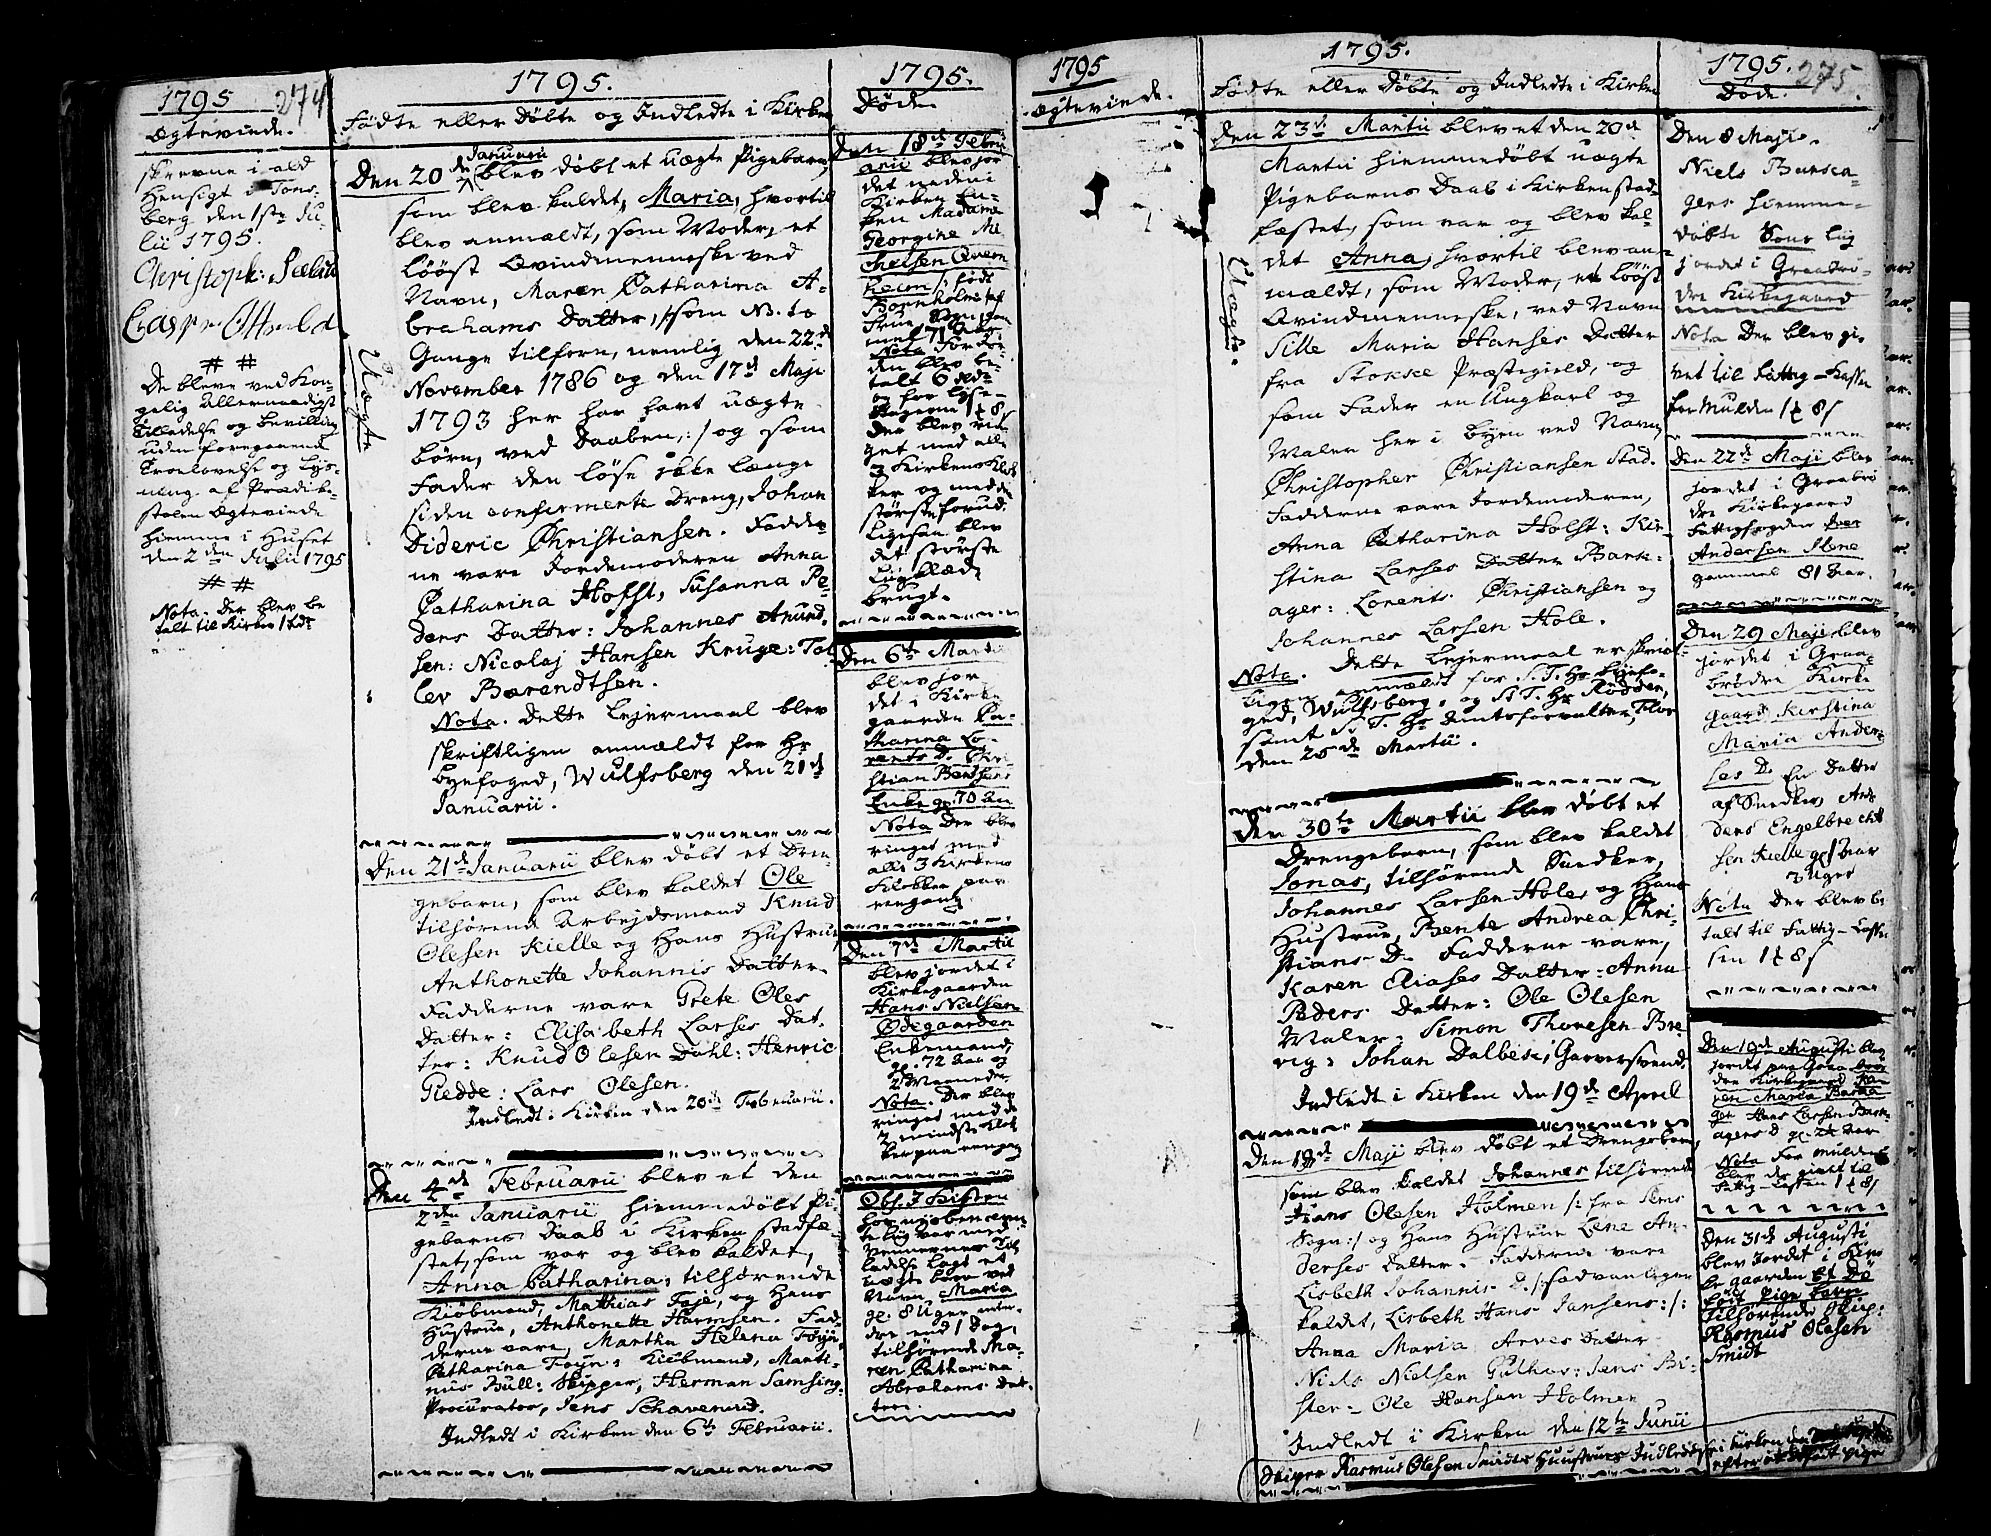 1795 274
Ægteviede.
skrevne i ald
Hensigt i Tons-
berg den 1ste Ju-
lii 1795.
Christoph: Seeberg
# #
De bleve ved Kon-
gelig Allernaadigst
Tilladelse og Bevilling
uden foregaaende
Troelovelse og Lys-
ning af Prædike-
stolen Ægteviede
hiemme i Huset
den 2den Julii 1795
# #
Nota. Der blev be
talt til Kirken 1 rdr
1795.
Fødte eller Døbte og Indledte i Kirken
Den 20de Januarii blev døbt et uægte Pigebarn,
som blev kaldet, Maria, hvortil
blev anmældt, som Moder, et
løøst Qvindmenneske ved
Navn, Maren Catharina A-
brahams Datter, /:som NB. to
Gange tilforn, nemlig den 22de
November 1786 og den 17de Maji
1793 her har havt uægte
børn, ved Daaben,:/ og som
Fader den løse ikke længe
siden confirmerte Dreng, Johan
Dideric Christiansen. Fadder-
ne vare Jordemoderen Anna
Catharina Holst, Susanna Pe-
ders Datter: Johannes Amund-
sen: Nicolaj Hansen Kruge: Tol
lev Barendtsen.
Uægte
Nota. Dette Lejermaal blev
skriftligen anmældt for Hr
byefoged, Wulfsberg den 21de
Januarii.
Den 21de Januarii blev døbt et Dren-
gebarn, som blev kaldet Ole
tilhørende Arbejdsmand Knud
Olesen Kielle og Hans Hustrue
Anthonette Johannis Datter.
Fadderne vare Grete Oles
Datter: Elisabeth Larses Dat-
ter: Knud Olesen Dahl: Henric
Redde: Lars Olesen.
Indledt i Kirken den 20de Februarii.
Den 4de Februarii blev et den
2den Januarii hiemmedøbt Pi-
gebarns Daab i Kirken stadfæ-
stet, som var og blev kaldet,
Anna Catharina, tilhørende
Kiøbmand, Mathias Foje, og Hans
Hustrue, Anthonette Harmsen. Fad-
derne vare, Martha Helena Føyn
Catharina Føyn: Kiøbmand, Marti-
nus Bull: Skipper, Herman Samsing
Procurator, Jens Schavenius.
Indledt i Kirken den 6te Februarii.
1795.
Døde.
Den 18de Febru
arii blev jor
det neden i
Kirken En-
ken Madame
Georgine Mi
chelsen Qvern
heim /: født
Bornholm
Nota. For Jor-
den blev be-
talt 6 rdr
og for Lyse-
stagerne 1 rt 8 s
Der blev rin-
get med alle
3 Kirkens Klok
ker og med de
største forud.
Ligesaa blev
det største
Liigklæde
brugt.
Den 6te Martii
blev jor
det i Kirke
gaarden Ca-
tharina Lo-
rents D. Chri-
stian Bentsens
Enke gl. 70 Aar
Nota Der blev
ringet med
alle 3 Kirkens
Klokker paa
eengang.
Den 7de Martii
blev jordet i
Kirkegaarden
Hans Nielsen
Ødegaarden
Enkemand,
gl. 72 Aar og
2 Maaneder
Nota. Der blev
ringet med de
2 mindste Klok
ker paa eengang
Obs. I Kisten
Navn, Maria
gl. 8 Uger min-
dre end 1 Dag,
tilhørende Ma-
ren Catharina
Abrahams Dat-
ter.
1795
Ægteviede.
1795.
Fødte eller Døbte og Indledte i Kirken
Den 23de Martii blev et den 20de
Martii hiemmedøbt uægte
Pigebarns Daab i Kirken stad-
fæstet, som var og blev kal-
det Anna, hvortil blev an-
mældt, som Moder, et løøst
Qvindmenneske, ved Navn
Sille Maria Hanses Datter
fra Stokke Præstegield, og
som Fader en Ungkarl og
Maler her i byen ved Navn,
Christopher Christiansen Stad.
Fadderne vare Jordemoderen,
Anna Catharina Holst: Kir-
stina Larses Datter Bark-
ager: Lorents Christiansen og
Johannes Larsen Hole.
Uægte.
Nota. Dette Lejermaal er skrivt-
ligen anmældt for S. T. Hr Byefo-
ged, Wulfsberg, og S. T. Hr Rødder,
samt S. T. Hr Amtsforvalter,
den 25de Martii.
Den 30te Martii blev døbt et
Drengebarn, som blev kaldet
Jonas, tilhørende Snedker,
Johannes Larsen Hole, og Hans
Hustrue, Bente Andrea Chri-
stians D. Fadderne vare,
Karen Eliases Datter: Anna
Peders Datter: Ole Olesen
Maler: Simon Thoresen Bre
vig: Johan Dalbesi, Garversvend,
Indledt i Kirken den 19de April
Maji blev døbt et Drengebarn,
som blev kaldet Johannes tilhørende
Hans Olesen Holmen /: fra Sems
Sogn:/ og Hans Hustrue Lene An-
derses Datter. Fadderne vare
Lisbeth Johannis D. /: sædvanligen
kaldet, Lisbeth Hans Jansens:/:
Anna Maria Arves Datter
Niels Nielsen Gulhav: Jens Bi-
ster: Ole Hansen Holmen
Indledt i Kirken den 12te Junii
Skipper Rasmus Olesen Smidts Huustrues Indledelse i Kirken
efter et dødfødt Pige
1795. 275.
Døde.
Den 8 Maji.
Niels Barka-
gers hiemme-
døbte Søns Liig
jordet i Graabrø-
dre Kirkegaard
Nota Der blev gi-
vet til Fattig-Kassen
for Mulden 1 rt 8 s
Den 22de Maji blev
jordet i Graabrø
dre Kirkegaard
Fattigfogden Iver
Andersen Slene
gammel 81 Aar.
Den 29 Maji blev
jordet i Graa-
brødre Kirke
gaard Kirstina
Maria Ander-
ses D. En Datter
af Snedker And-
ders Engelbrecht
sen Kielle gl. 1 Aar
3 Uger
Nota Der blev be
talt til Fattig-Casse
sen 1 rt 8 s
Augusti blev
jordet paa Graa brø
dre Kirkegaard Ka
ren Maria Barka
ger Hans Larsen Bark-
agers D gl. 2½ Aar
Nota For Mulden
blev der givet til
Fattig-Cassen 1 rt 8 s
Den 31te Augusti
blev Jordet i Kir-
kegaarden Et Dø
født Pige Barn
Tilhørende Skip:
Rasmus Olesen
Smidt